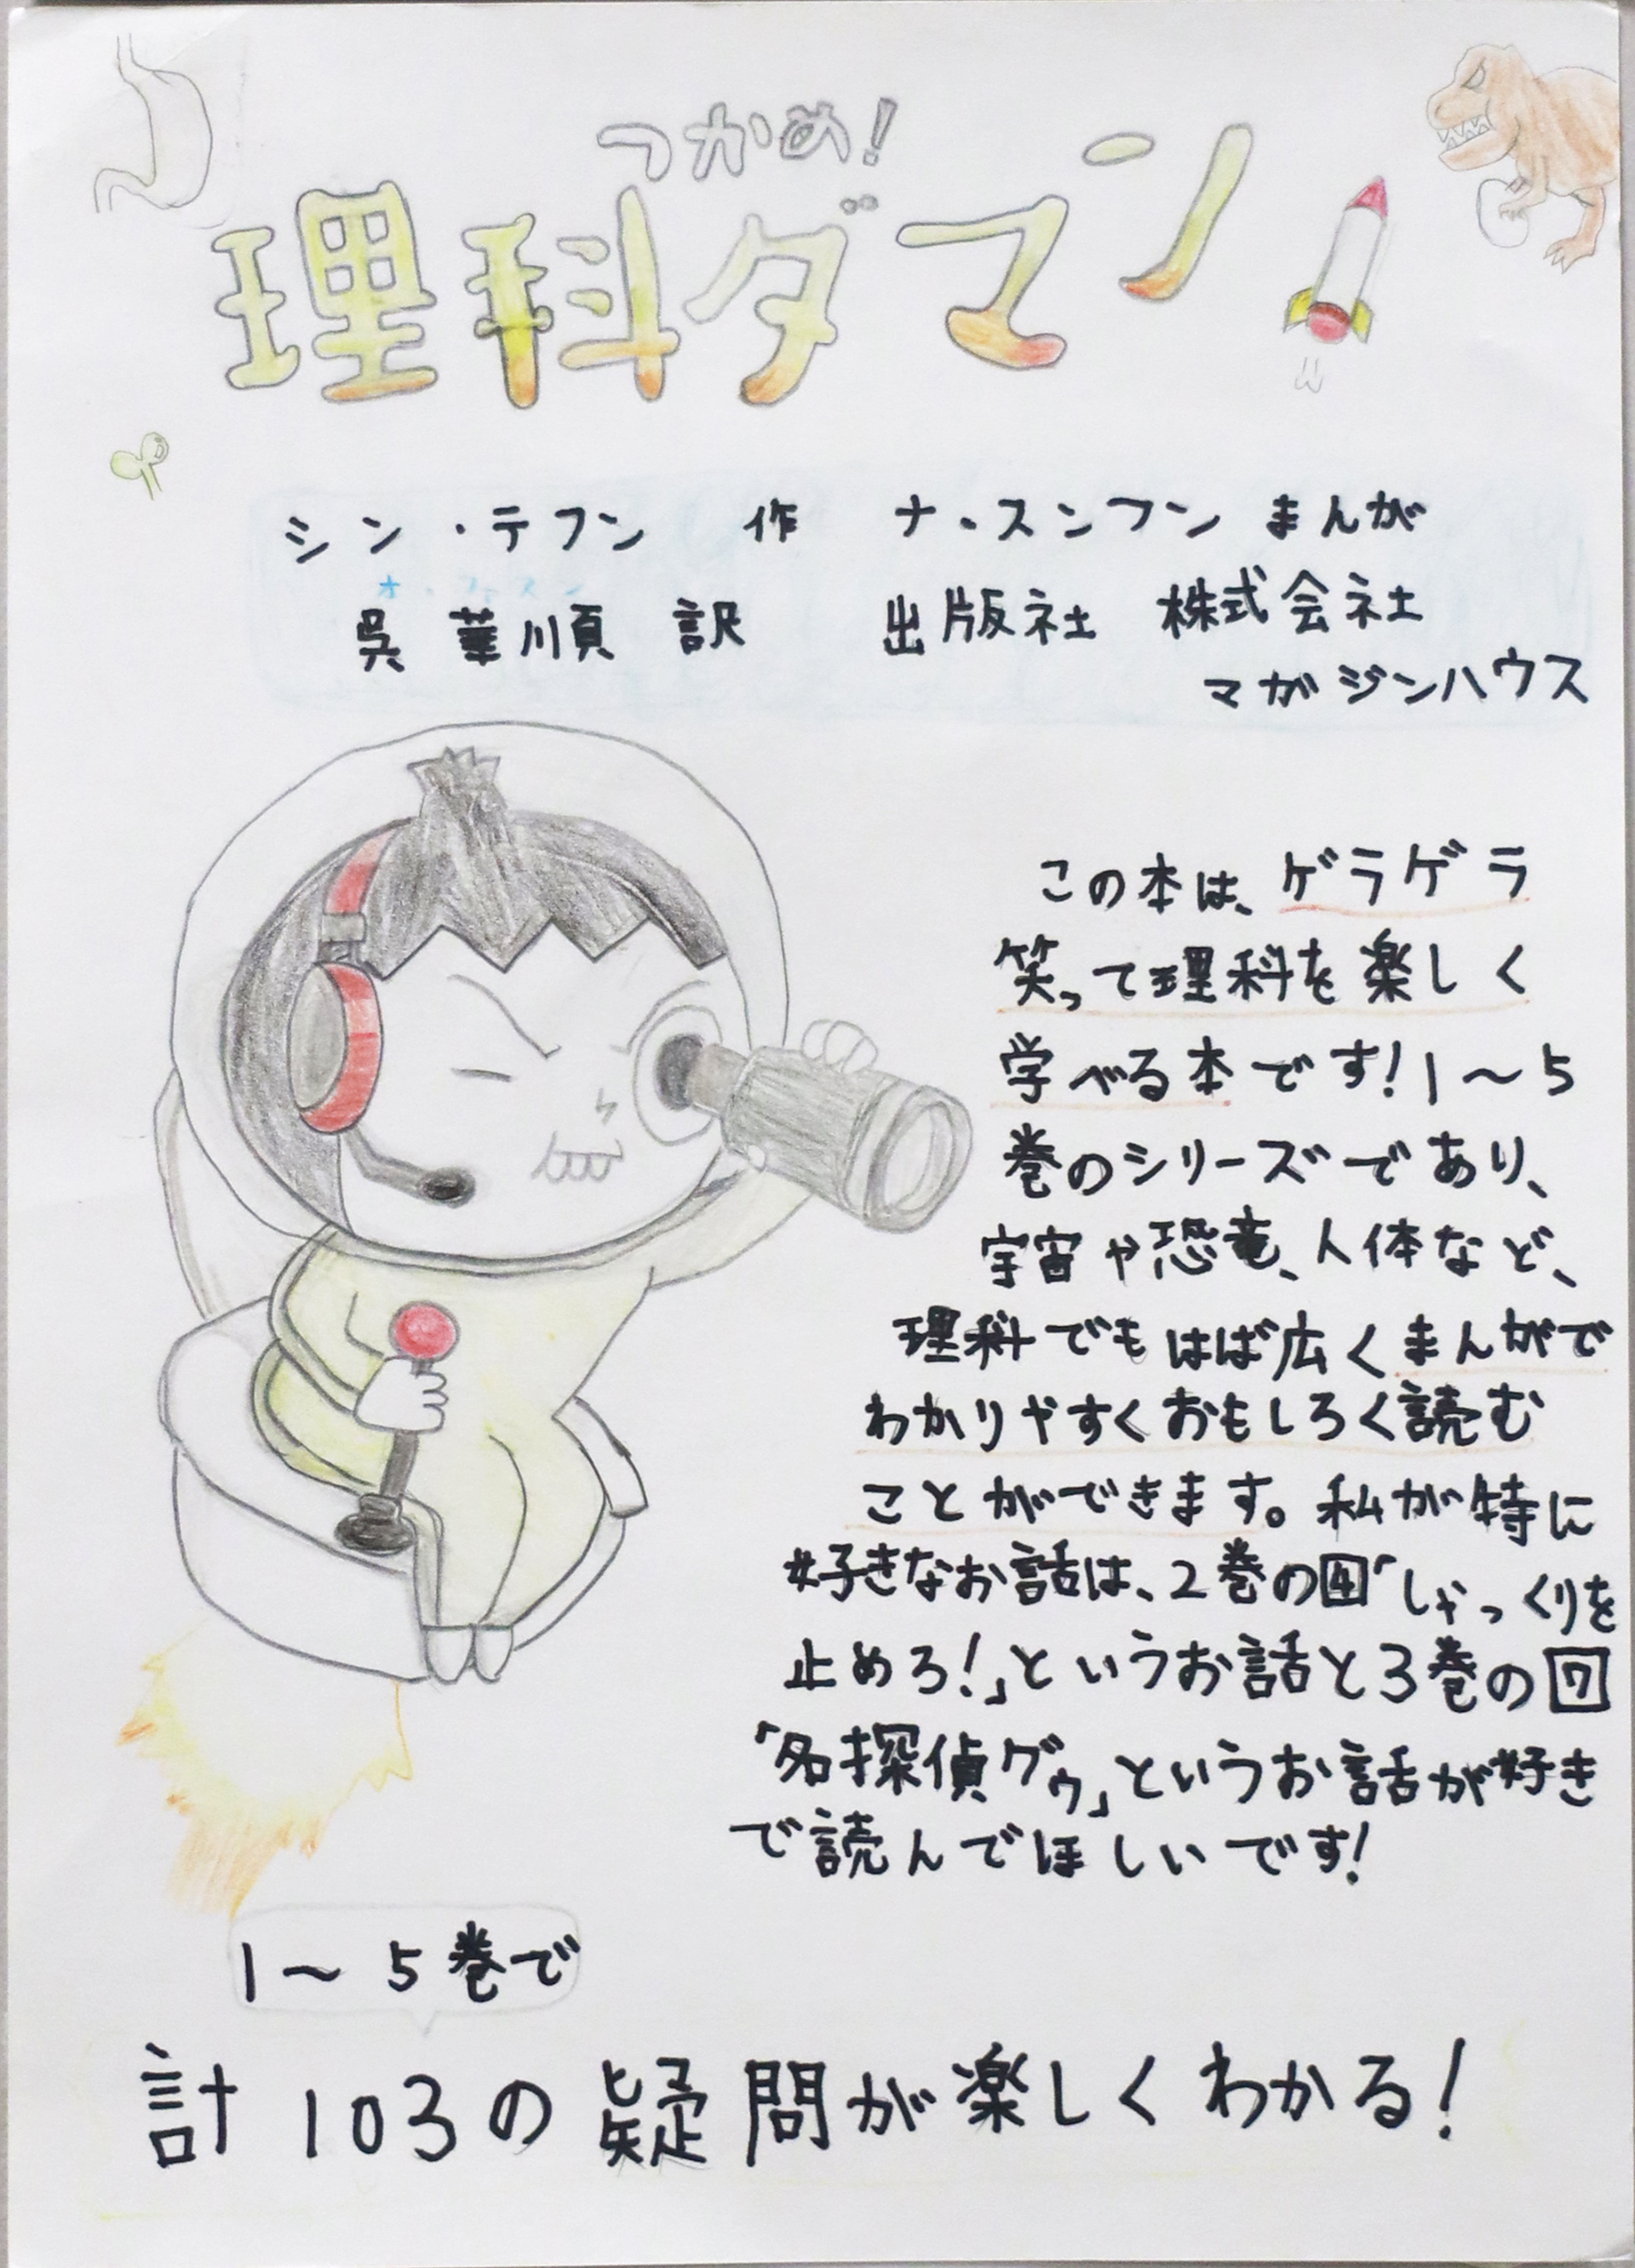 つかめ!
理科ダマン
シン・テフン 作 ナ・スンフン まんが
オ・ファスン
呉 華順 訳 出版社 株式会社
マガジンハウス
この本は、ゲラゲラ
笑って理科を楽しく
学べる本です!1~5
巻のシリーズであり、
宇宙や恐竜、人体など、
理科でもはば広くまんがで
わかりやすくおもしろく読む
ことができます。私が特に
好きなお話は、2巻の4「しゃっくりを
止めろ!」というお話と3巻の
「名探偵グゥ」というお話が好き
で読んでほしいです!
1~5巻で
計103の疑問が楽しくわかる!